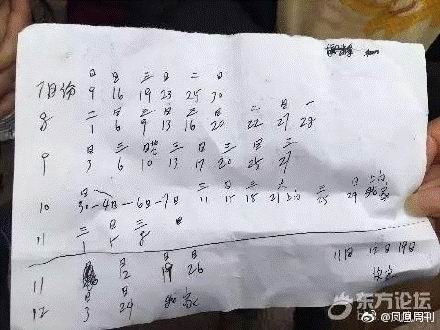 7月份 日 日 三 日 二 日
9 16 19 23 25 30
8 二 日 三 日 三 日 二 日 一
1 6 9 13 16 20 22 27 28
9 日 三 日 三 日 三 日 三
3 6 10 13 17 20 25 27
10 日 二 日 三 日
30-4日-6日-7日 11 15 15 21 25 29
11 三 日 三 日
1 5 8
11 日 日 日 11日 12日 19日
12 19 26
12 日 日 家
3 24
东方论坛
@凤凰周刊